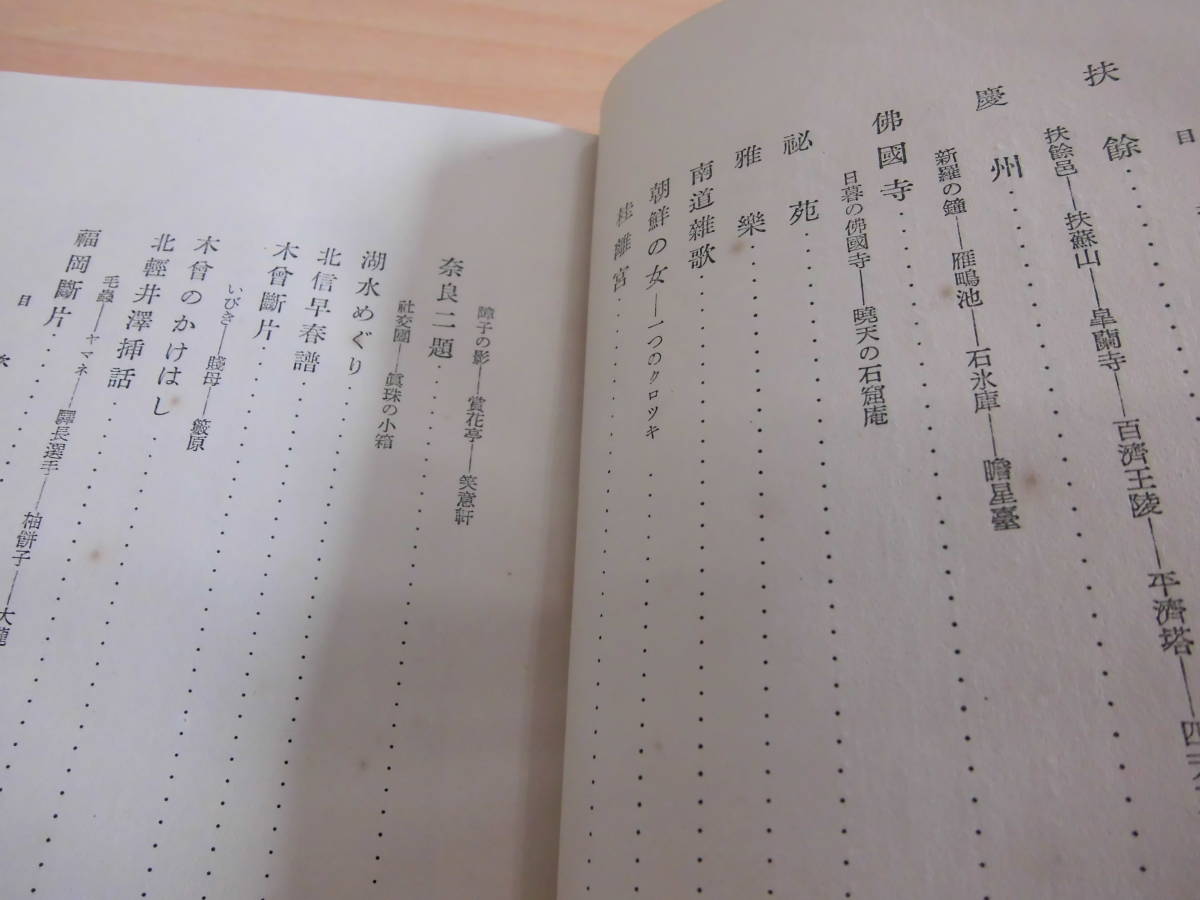 日
扶餘
扶餘邑―扶蘇山―皐蘭寺―百濟王陵―平濟塔―四
慶州
新羅の鐘―雁鴨池―石氷庫―瞻星臺
佛國寺
日暮の佛國寺―曉天の石窟庵
祕苑
雅樂
南道雜歌
朝鮮の女―一つのクロツキ
桂離宮
障子の影―賞花亭―笑意軒
奈良二題
社交團―眞珠の小箱
湖水めぐり
北信早春譜
木曾斷片
木曾のかけはし
いびき―賤母―籔原
北輕井澤揷話
毛蟲―ヤマネ―驛長選手―柚餅子―大瀧
福岡斷片
目次